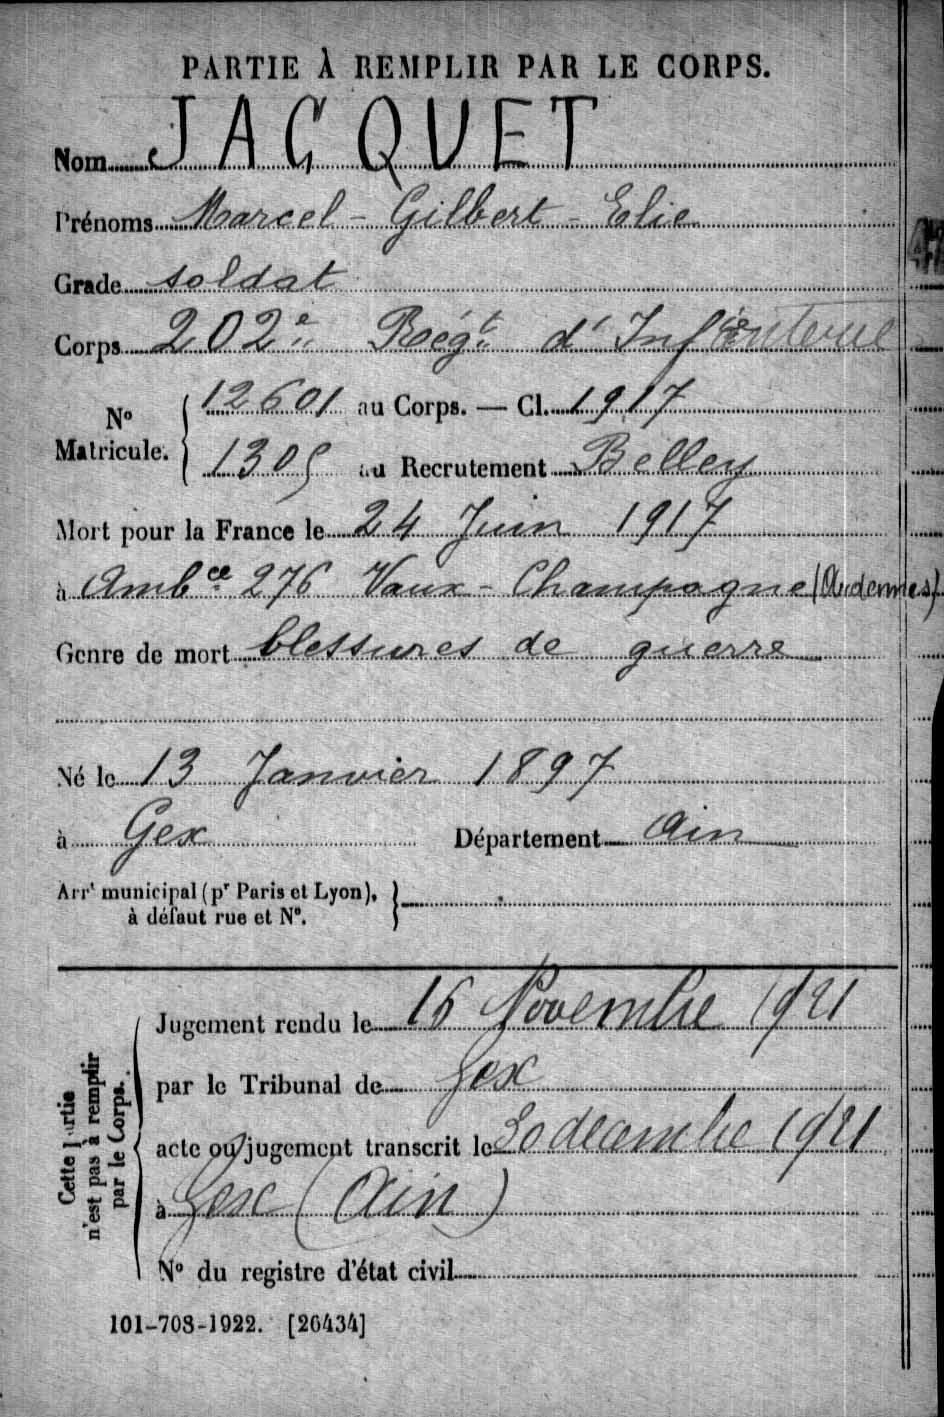 PARTIE À REMPLIR PAR LE CORPS.
Nom JACQUET
Prénoms Marcel - Gilbert - Elie
Grade soldat
Corps 202e Régt d'Infanterie
No Matricule. { 12601 au Corps. — Cl. 1917
1305 au Recrutement Belley
Mort pour la France le 24 Juin 1917
à Ambce 276 Vaux - Champagne (Ardennes)
Genre de mort blessures de guerre
Né le 13 Janvier 1897
à Gex Département Ain
Arrt municipal (pr Paris et Lyon),
à défaut rue et No.
Jugement rendu le 16 Novembre 1921
par le Tribunal de Gex
acte ou jugement transcrit le 30 décembre 1921
à Gex (Ain)
No du registre d'état civil
Cette partie
n'est pas à remplir
par le Corps.
101-708-1922. [26434]